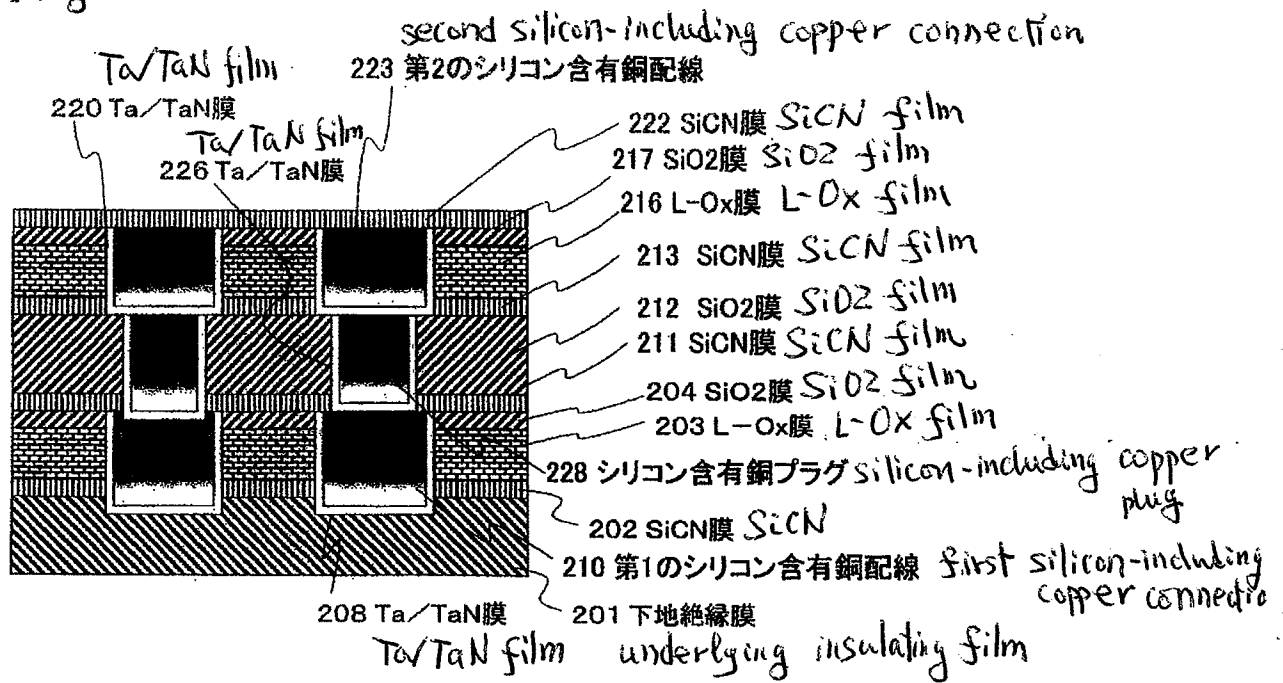 second silicon-including copper connection
Ta/TaN film
223 第2のシリコン含有銅配線
220 Ta/TaN膜
Ta/TaN film
226 Ta/TaN膜
222 SiCN膜 SiCN film
217 SiO2膜 SiO2 film
216 L-Ox膜 L-Ox film
213 SiCN膜 SiCN film
212 SiO2膜 SiO2 film
211 SiCN膜 SiCN film
204 SiO2膜 SiO2 film
203 L-Ox膜 L-Ox film
228 シリコン含有銅プラグ silicon-including copper
plug
202 SiCN膜 SiCN
210 第1のシリコン含有銅配線 first silicon-including
copper connectio
208 Ta/TaN膜
201 下地絶縁膜
Ta/TaN film
underlying insulating film